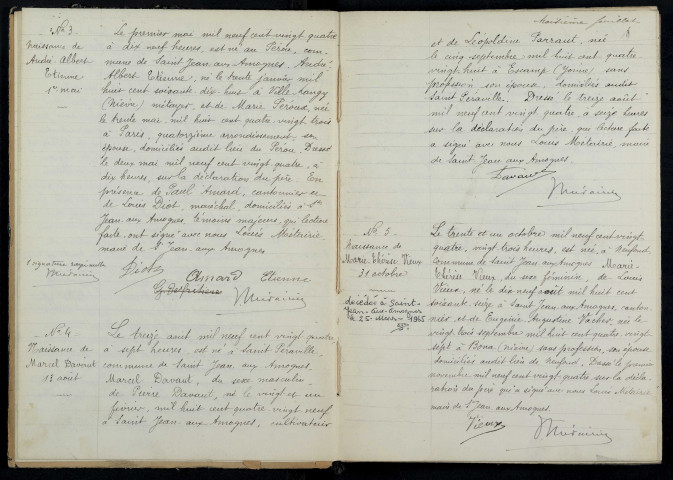 N° 3
Naissance de
André Albert
Etienne
1er mai
Le premier mai mil neuf cent vingt quatre
à dix neuf heures, est né au Pérou, com-
mune de Saint Jean aux Amognes, André
Albert Etienne, né le trente janvier mil
huit cent soixante dix huit à Ville Langy
(Nièvre) métayer, et de Marie Péroux, née
le trente mai mil huit cent quatre vingt trois
à Paris, quatorzième arrondissement, son
épouse, domiciliés audit lieu du Pérou. Dressé
le deux mai mil neuf cent vingt quatre, à
dix heures, sur la déclaration du père. En
présence de Paul Amard, cantonnier et
de Louis Diot, maréchal, domiciliés à St
Jean aux Amognes, témoins majeurs, qui lecture
faite, ont signé avec nous Louis Métairie,
maire de St Jean aux Amognes
1 signature rayée nulle
Diot
Amard
Etienne
N° 4
Naissance de
Marcel Davaut
13 août
Le treize août mil neuf cent vingt quatre
à sept heures, est né à Saint Péraville,
commune de Saint Jean aux Amognes,
Marcel Davaut, du sexe masculin
de Pierre Davaut, né le vingt et un
février, mil huit cent quatre vingt neuf
à Saint Jean aux Amognes, cultivateur
et de Léopoldine Parraut, née
le cinq septembre mil huit cent quatre
vingt huit à Escamp (Yonne) sans
profession, son épouse, domiciliés audit
Saint Péraville. Dressé le treize août
mil neuf cent vingt quatre, à seize heures
sur la déclaration du père, que lecture faite
a signé avec nous Louis Métairie, maire
de Saint Jean aux Amognes
Davaut
N° 5
Naissance de
Marie Thérèse Vieux
31 octobre
décédée à Saint-
Jean-aux-Amognes
le 25 Mars 1965
Le trente et un octobre mil neuf cent vingt
quatre, vingt trois heures, est née, à Neufond,
commune de Saint Jean aux Amognes Marie-
Thérèse Vieux du sexe féminin, de Louis
Vieux, né le dix neuf août mil huit cent
soixante seize à Saint Jean aux Amognes, canton-
nier, et de Eugénie Augustine Vacher, née le
vingt trois septembre mil huit cent quatre vingt
sept à Bona (Nièvre) sans profession, son épouse
domiciliés audit lieu de Neufond. Dressé le premier
novembre mil neuf cent vingt quatre, sur la décla-
ration du père qui a signé avec nous Louis Métairie
maire de St Jean aux Amognes.
Vieux